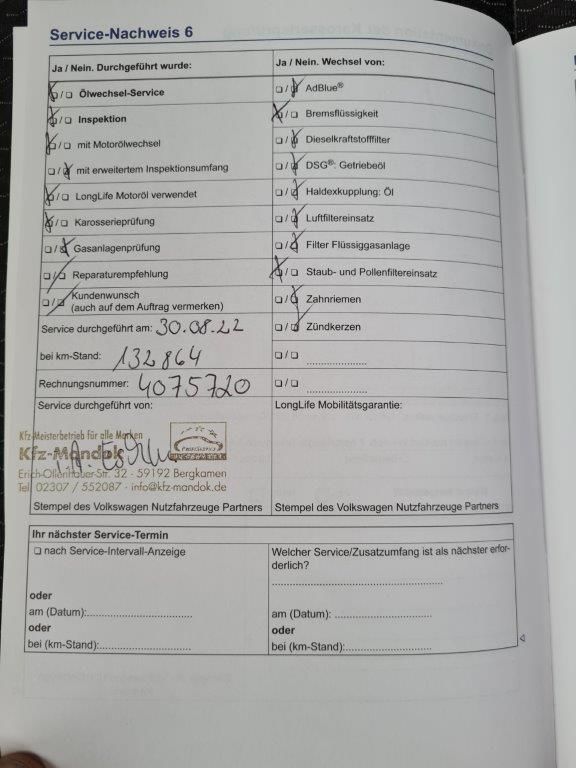 Service-Nachweis 6
Ja / Nein. Durchgeführt wurde:
☒/☐ Ölwechsel-Service
☒/☐ Inspektion
☒/☐ mit Motorölwechsel
☐/☒ mit erweitertem Inspektionsumfang
☒/☐ LongLife Motoröl verwendet
☒/☐ Karosserieprüfung
☐/☒ Gasanlagenprüfung
☐/☐ Reparaturempfehlung
☐/☐ Kundenwunsch
(auch auf dem Auftrag vermerken)
Service durchgeführt am: 30.08.22
bei km-Stand: 132864
Rechnungsnummer: 4075720
Service durchgeführt von:
Kfz-Meisterbetrieb für alle Marken
Kfz-Mandok
Erich-Ollenhauer-Str. 32 - 59192 Bergkamen
Tel. 02307 / 552087 · info@kfz-mandok.de
Stempel des Volkswagen Nutzfahrzeuge Partners
Ja / Nein. Wechsel von:
☐/☒ AdBlue®
☒/☐ Bremsflüssigkeit
☐/☒ Dieselkraftstofffilter
☐/☒ DSG®: Getriebeöl
☐/☒ Haldexkupplung: Öl
☐/☒ Luftfiltereinsatz
☐/☒ Filter Flüssiggasanlage
☒/☐ Staub- und Pollenfiltereinsatz
☐/☒ Zahnriemen
☐/☒ Zündkerzen
☐/☐ ......................
☐/☐ ......................
LongLife Mobilitätsgarantie:
Stempel des Volkswagen Nutzfahrzeuge Partners
Ihr nächster Service-Termin
☐ nach Service-Intervall-Anzeige
oder
am (Datum):...................................
oder
bei (km-Stand):..............................
Welcher Service/Zusatzumfang ist als nächster erfor-
derlich?
..................................................
am (Datum): ................................
oder
bei (km-Stand):............................